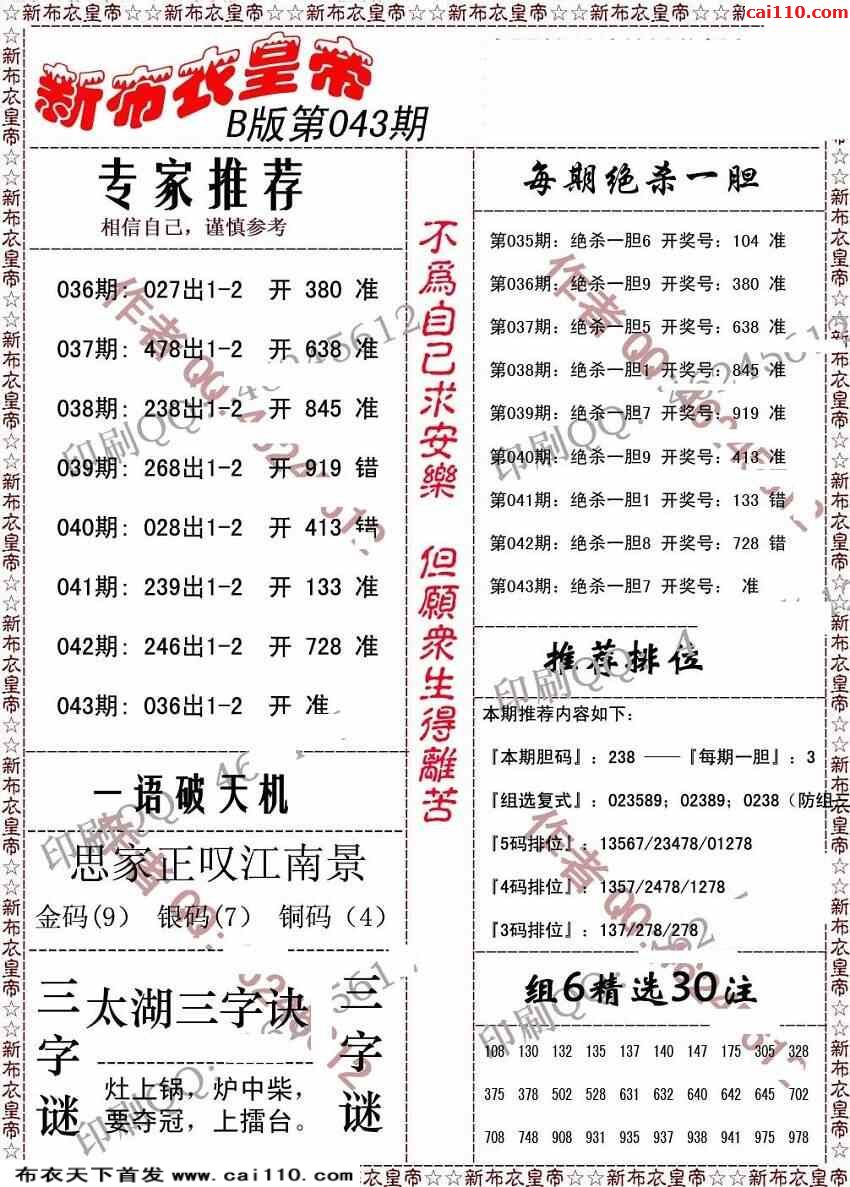 ☆☆新布衣皇帝☆☆新布衣皇帝☆☆新布衣皇帝☆☆新布衣皇帝☆☆新布衣皇帝☆☆新布衣皇帝☆☆新
cai110.com
新布衣皇帝
B版第043期
专家推荐
相信自己，谨慎参考
036期: 027出1-2 开 380 准
037期: 478出1-2 开 638 准
038期: 238出1-2 开 845 准
039期: 268出1-2 开 919 错
040期: 028出1-2 开 413 错
041期: 239出1-2 开 133 准
042期: 246出1-2 开 728 准
043期: 036出1-2 开 准
一语破天机
思家正叹江南景
金码(9) 银码(7) 铜码（4）
三字谜
太湖三字诀
灶上锅，炉中柴，
要夺冠，上擂台。
三字谜
不為自己求安樂 但願衆生得離苦
每期绝杀一胆
第035期: 绝杀一胆6 开奖号: 104 准
第036期: 绝杀一胆9 开奖号: 380 准
第037期: 绝杀一胆5 开奖号: 638 准
第038期: 绝杀一胆1 开奖号: 845 准
第039期: 绝杀一胆7 开奖号: 919 准
第040期: 绝杀一胆9 开奖号: 413 准
第041期: 绝杀一胆1 开奖号: 133 错
第042期: 绝杀一胆8 开奖号: 728 错
第043期: 绝杀一胆7 开奖号: 准
推荐排位
本期推荐内容如下:
『本期胆码』: 238 ——『每期一胆』: 3
『组选复式』: 023589; 02389; 0238（防组三
『5码排位』: 13567/23478/01278
『4码排位』: 1357/2478/1278
『3码排位』: 137/278/278
组6精选30注
108 130 132 135 137 140 147 175 305 328
375 378 502 528 631 632 640 642 645 702
708 748 908 931 935 937 938 941 975 978
布衣天下首发 www.cai110.com
☆新布衣皇帝☆☆新布衣皇帝☆☆新布衣皇帝☆☆新布衣皇帝☆